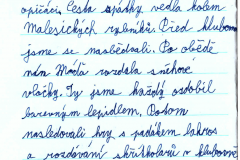 opičáci. Cesta zpátky vedla kolem
Malešických rybníků. Před klubovnou
jsme se naobědvali. Po obědě
nám Móťa rozdala sněhové
vločky. Ty jsme každý ozdobil
barevným lepidlem. Potom
následovali hry s padákem lakros
a rozdávání skřítkolarů v klubovně